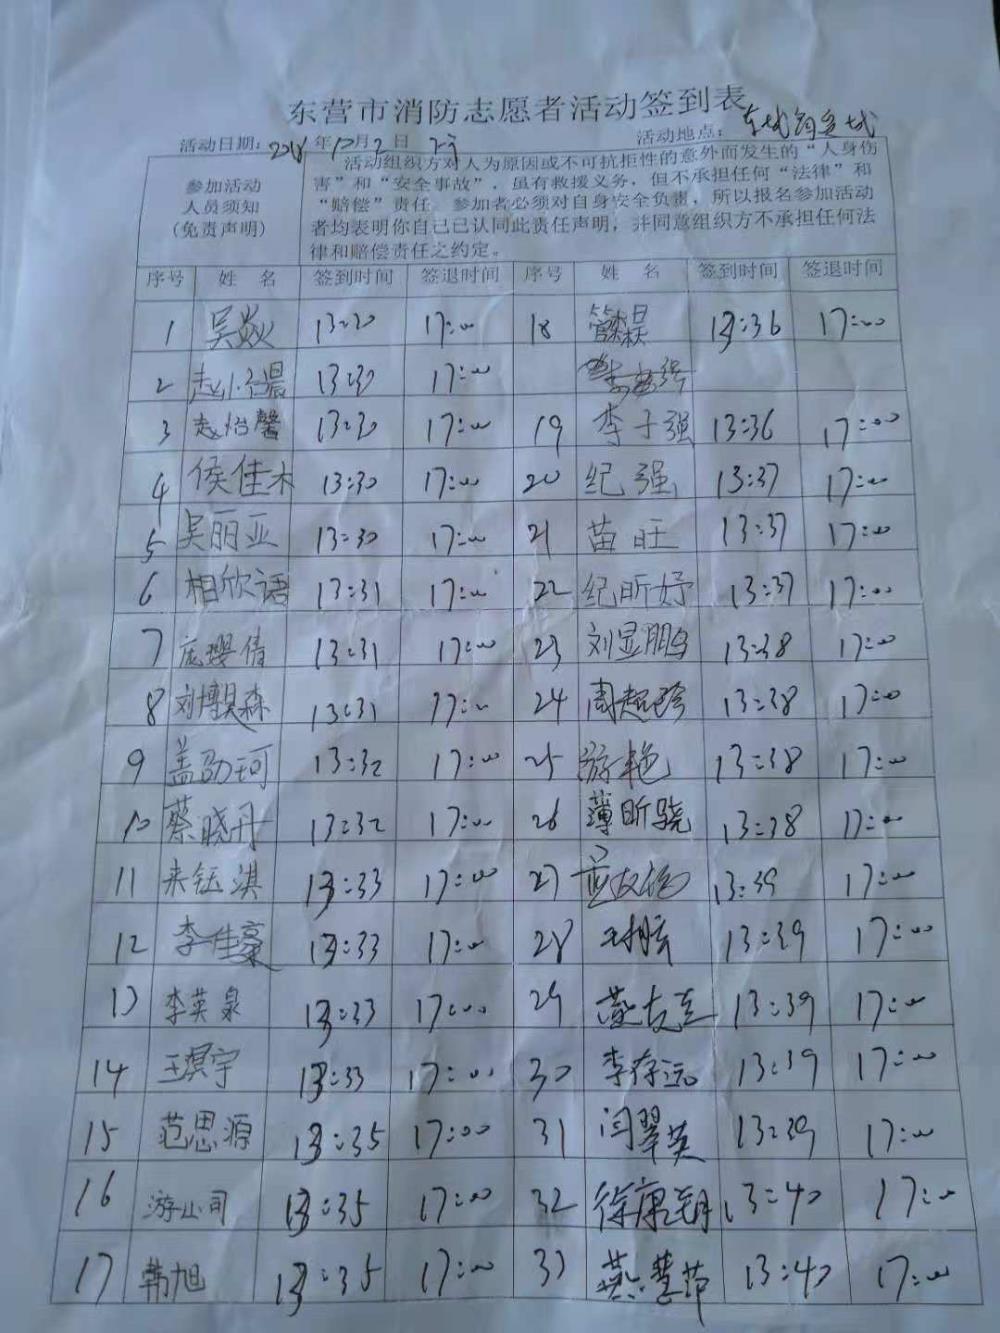 东营市消防志愿者活动签到表
活动日期：2018年12月2日 活动地点：东城
参加活动
人员须知
(免责声明)
活动组织方对人为原因或不可抗拒性的意外而发生的“人身伤
害”和“安全事故”，虽有救援义务，但不承担任何“法律”和
“赔偿”责任。参加者必须对自身安全负责，所以报名参加活动
者均表明你自己已认同此责任声明，并同意组织方不承担任何法
律和赔偿责任之约定。
序号 姓 名 签到时间 签退时间 序号 姓 名 签到时间 签退时间
1 吴焱 13:30 17:00 18 13:36 17:00
2 赵小晨 13:30 17:00
3 赵怡馨 13:30 17:00 19 李子强 13:36 17:00
4 侯佳木 13:30 17:00 20 纪强 13:37 17:00
5 吴丽亚 13:30 17:00 21 苗旺 13:37 17:00
6 相欣语 13:31 17:00 22 纪昕妤 13:37 17:00
7 倩 13:31 17:00 23 刘显鹏 13:38 17:00
8 刘博昊森 13:31 17:00 24 周超 13:38 17:00
9 盖劭珂 13:32 17:00 25 游艳 13:38 17:00
10 蔡晓丹 13:32 17:00 26 薄昕骁 13:38 17:00
11 来钰淇 13:33 17:00 27 13:39 17:00
12 李佳豪 13:33 17:00 28 13:39 17:00
13 李英泉 13:33 17:00 29 13:39 17:00
14 王淏宇 13:33 17:00 30 李存远 13:39 17:00
15 范思源 13:35 17:00 31 闫翠英 13:39 17:00
16 游山司 13:35 17:00 32 徐康 13:40 17:00
17 韩旭 13:35 17:00 33 13:40 17:00